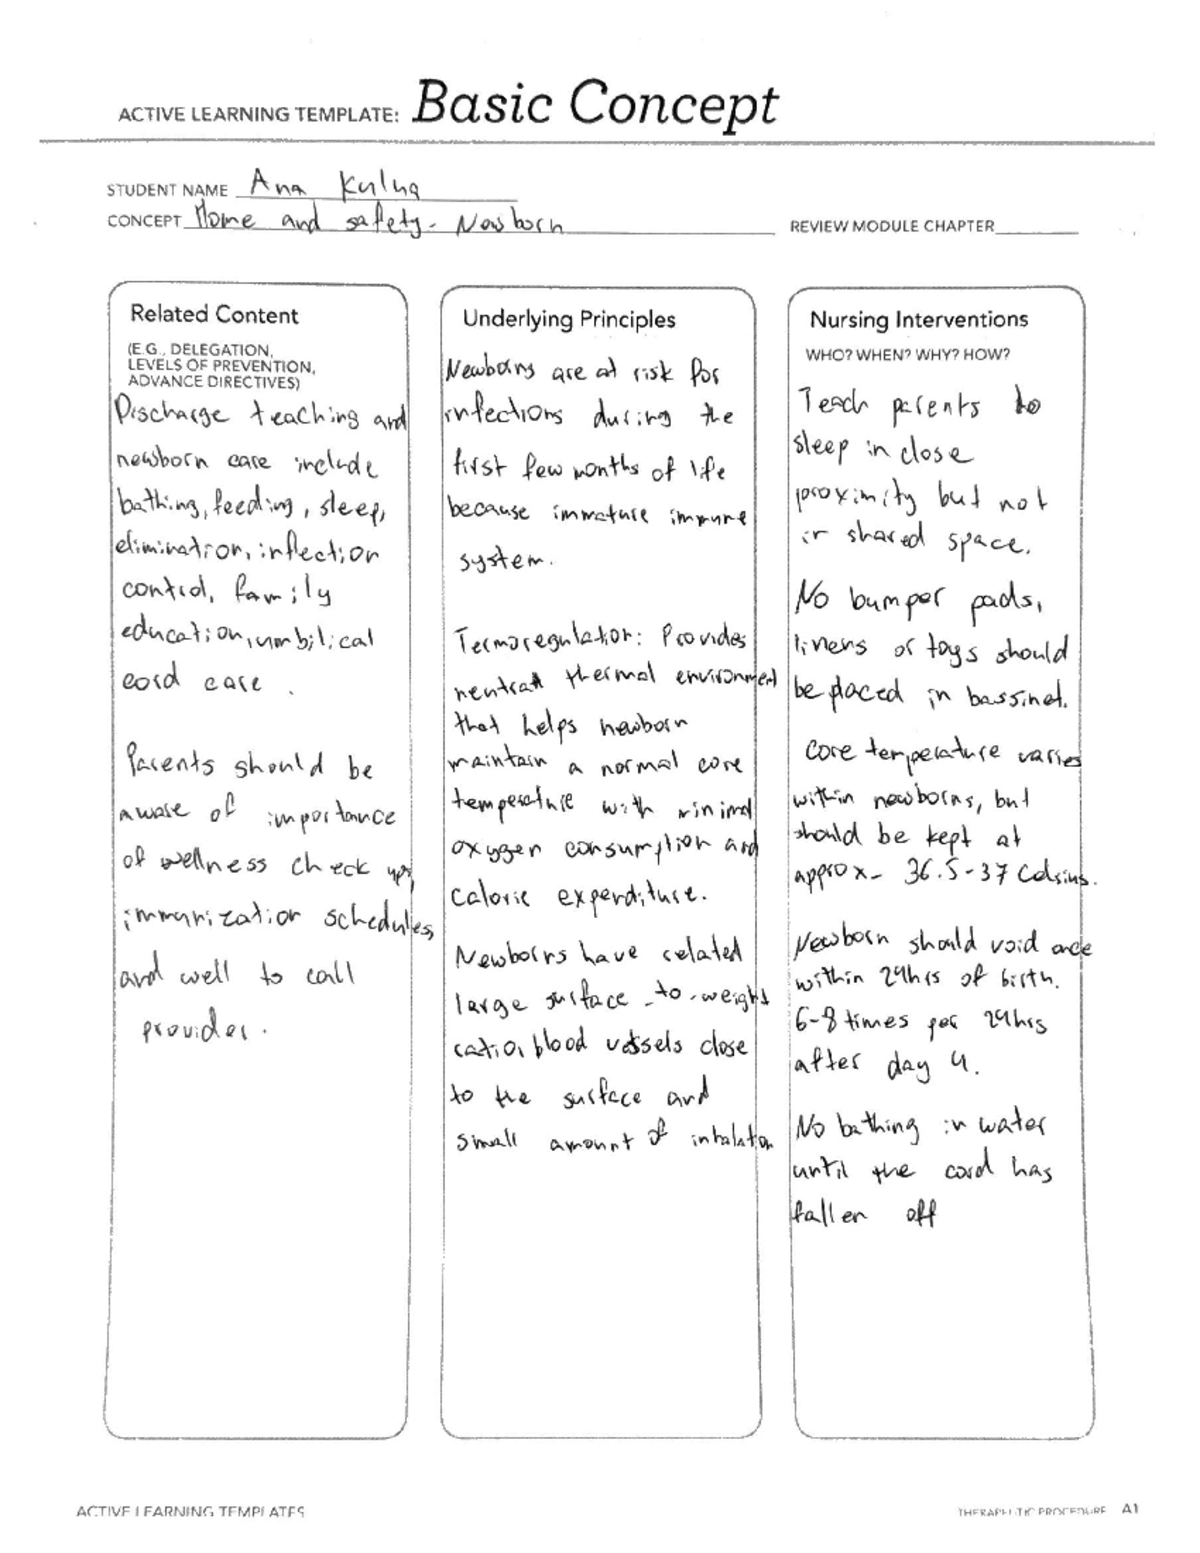 ACTIVE LEARNING TEMPLATE: Basic Concept
STUDENT NAME Ana
CONCEPT Home and safety - Newborn
REVIEW MODULE CHAPTER
Related Content
(E.G., DELEGATION,
LEVELS OF PREVENTION,
ADVANCE DIRECTIVES)
Discharge teaching and
newborn care include
bathing, feeding, sleep,
elimination, infection
control, family
education, umbilical
cord care.
Parents should be
aware of importance
of wellness check ups,
immunization schedules,
and well to call
provider.
Underlying Principles
Newborns are at risk for
infections during the
first few months of life
because immature immune
system.
Termoregulation: Provides
neutral thermal environment
that helps newborn
maintain a normal core
temperature with minimal
oxygen consumption and
caloric expenditure.
Newborns have related
large surface-to-weight
ratio, blood vessels close
to the surface and
small amount of
Nursing Interventions
WHO? WHEN? WHY? HOW?
Teach parents to
sleep in close
proximity but not
in shared space.
No bumper pads,
linens or toys should
be placed in bassinet.
Core temperature varies
within newborns, but
should be kept at
approx- 36.5-37 Celsius.
Newborn should void once
within 24hrs of birth.
6-8 times per 24hrs
after day 4.
No bathing in water
until the cord has
fallen off
ACTIVE LEARNING TEMPLATES
THERAPEUTIC PROCEDURE A1